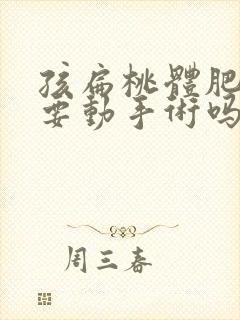 孩扁桃體肥
要動手術吗
周三春